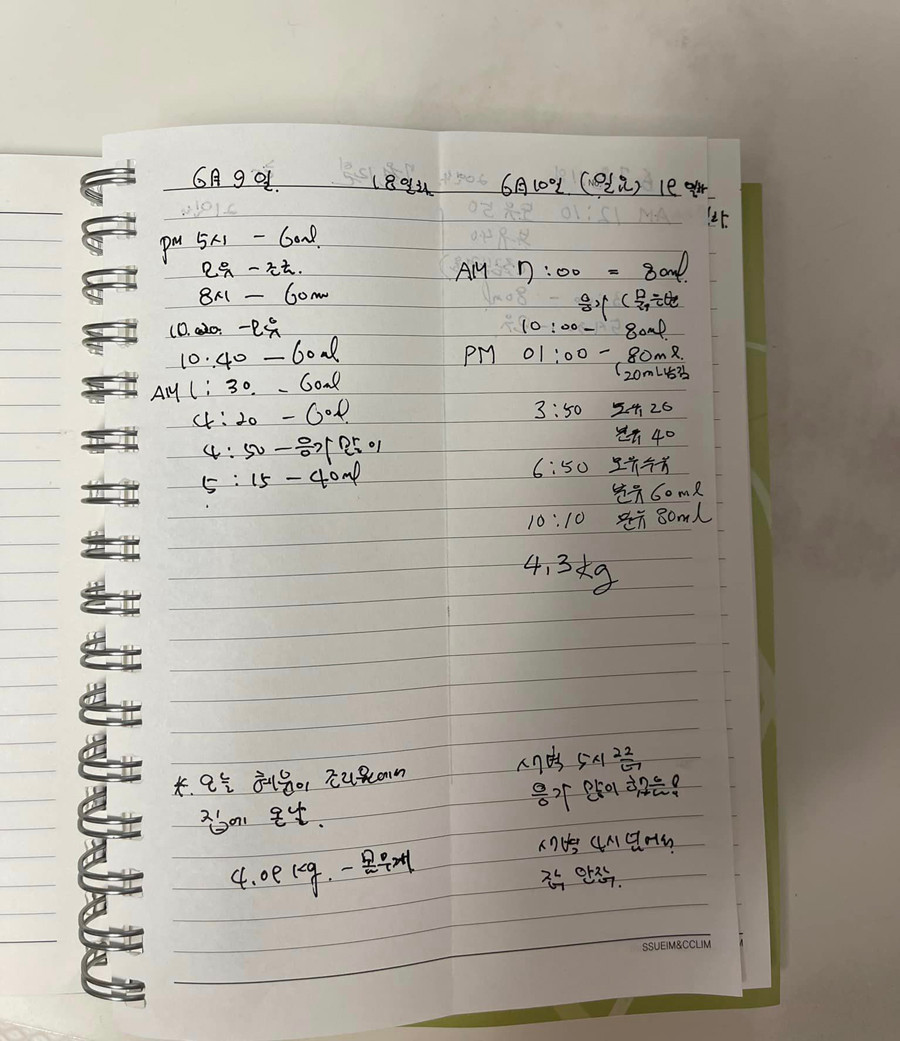 6月 9일. 18일차
PM 5시 - 60ml
모유 - 조금.
8시 - 60ml
10.20. - 모유
10.40 - 60ml
AM 1:30. - 60ml
4:20 - 60ml
4:50 - 응가 많이
5:15 - 40ml
*. 오늘 조리원에서
집에 온날.
4.09 kg. - 몸무게
6月 10일 (일요) 19일차
AM 7:00 = 80ml
응가 (묽은변
10:00 - 80ml
PM 01:00 - 80ml.
(20ml 남김
3:50 모유 20
분유 40
6:50 모유수유
분유 60ml
10:10 분유 80ml
4.3kg
새벽 5시
응가 많이
새벽 4시 넘어서
잠 안잠.
SSUEIM&CCLIM